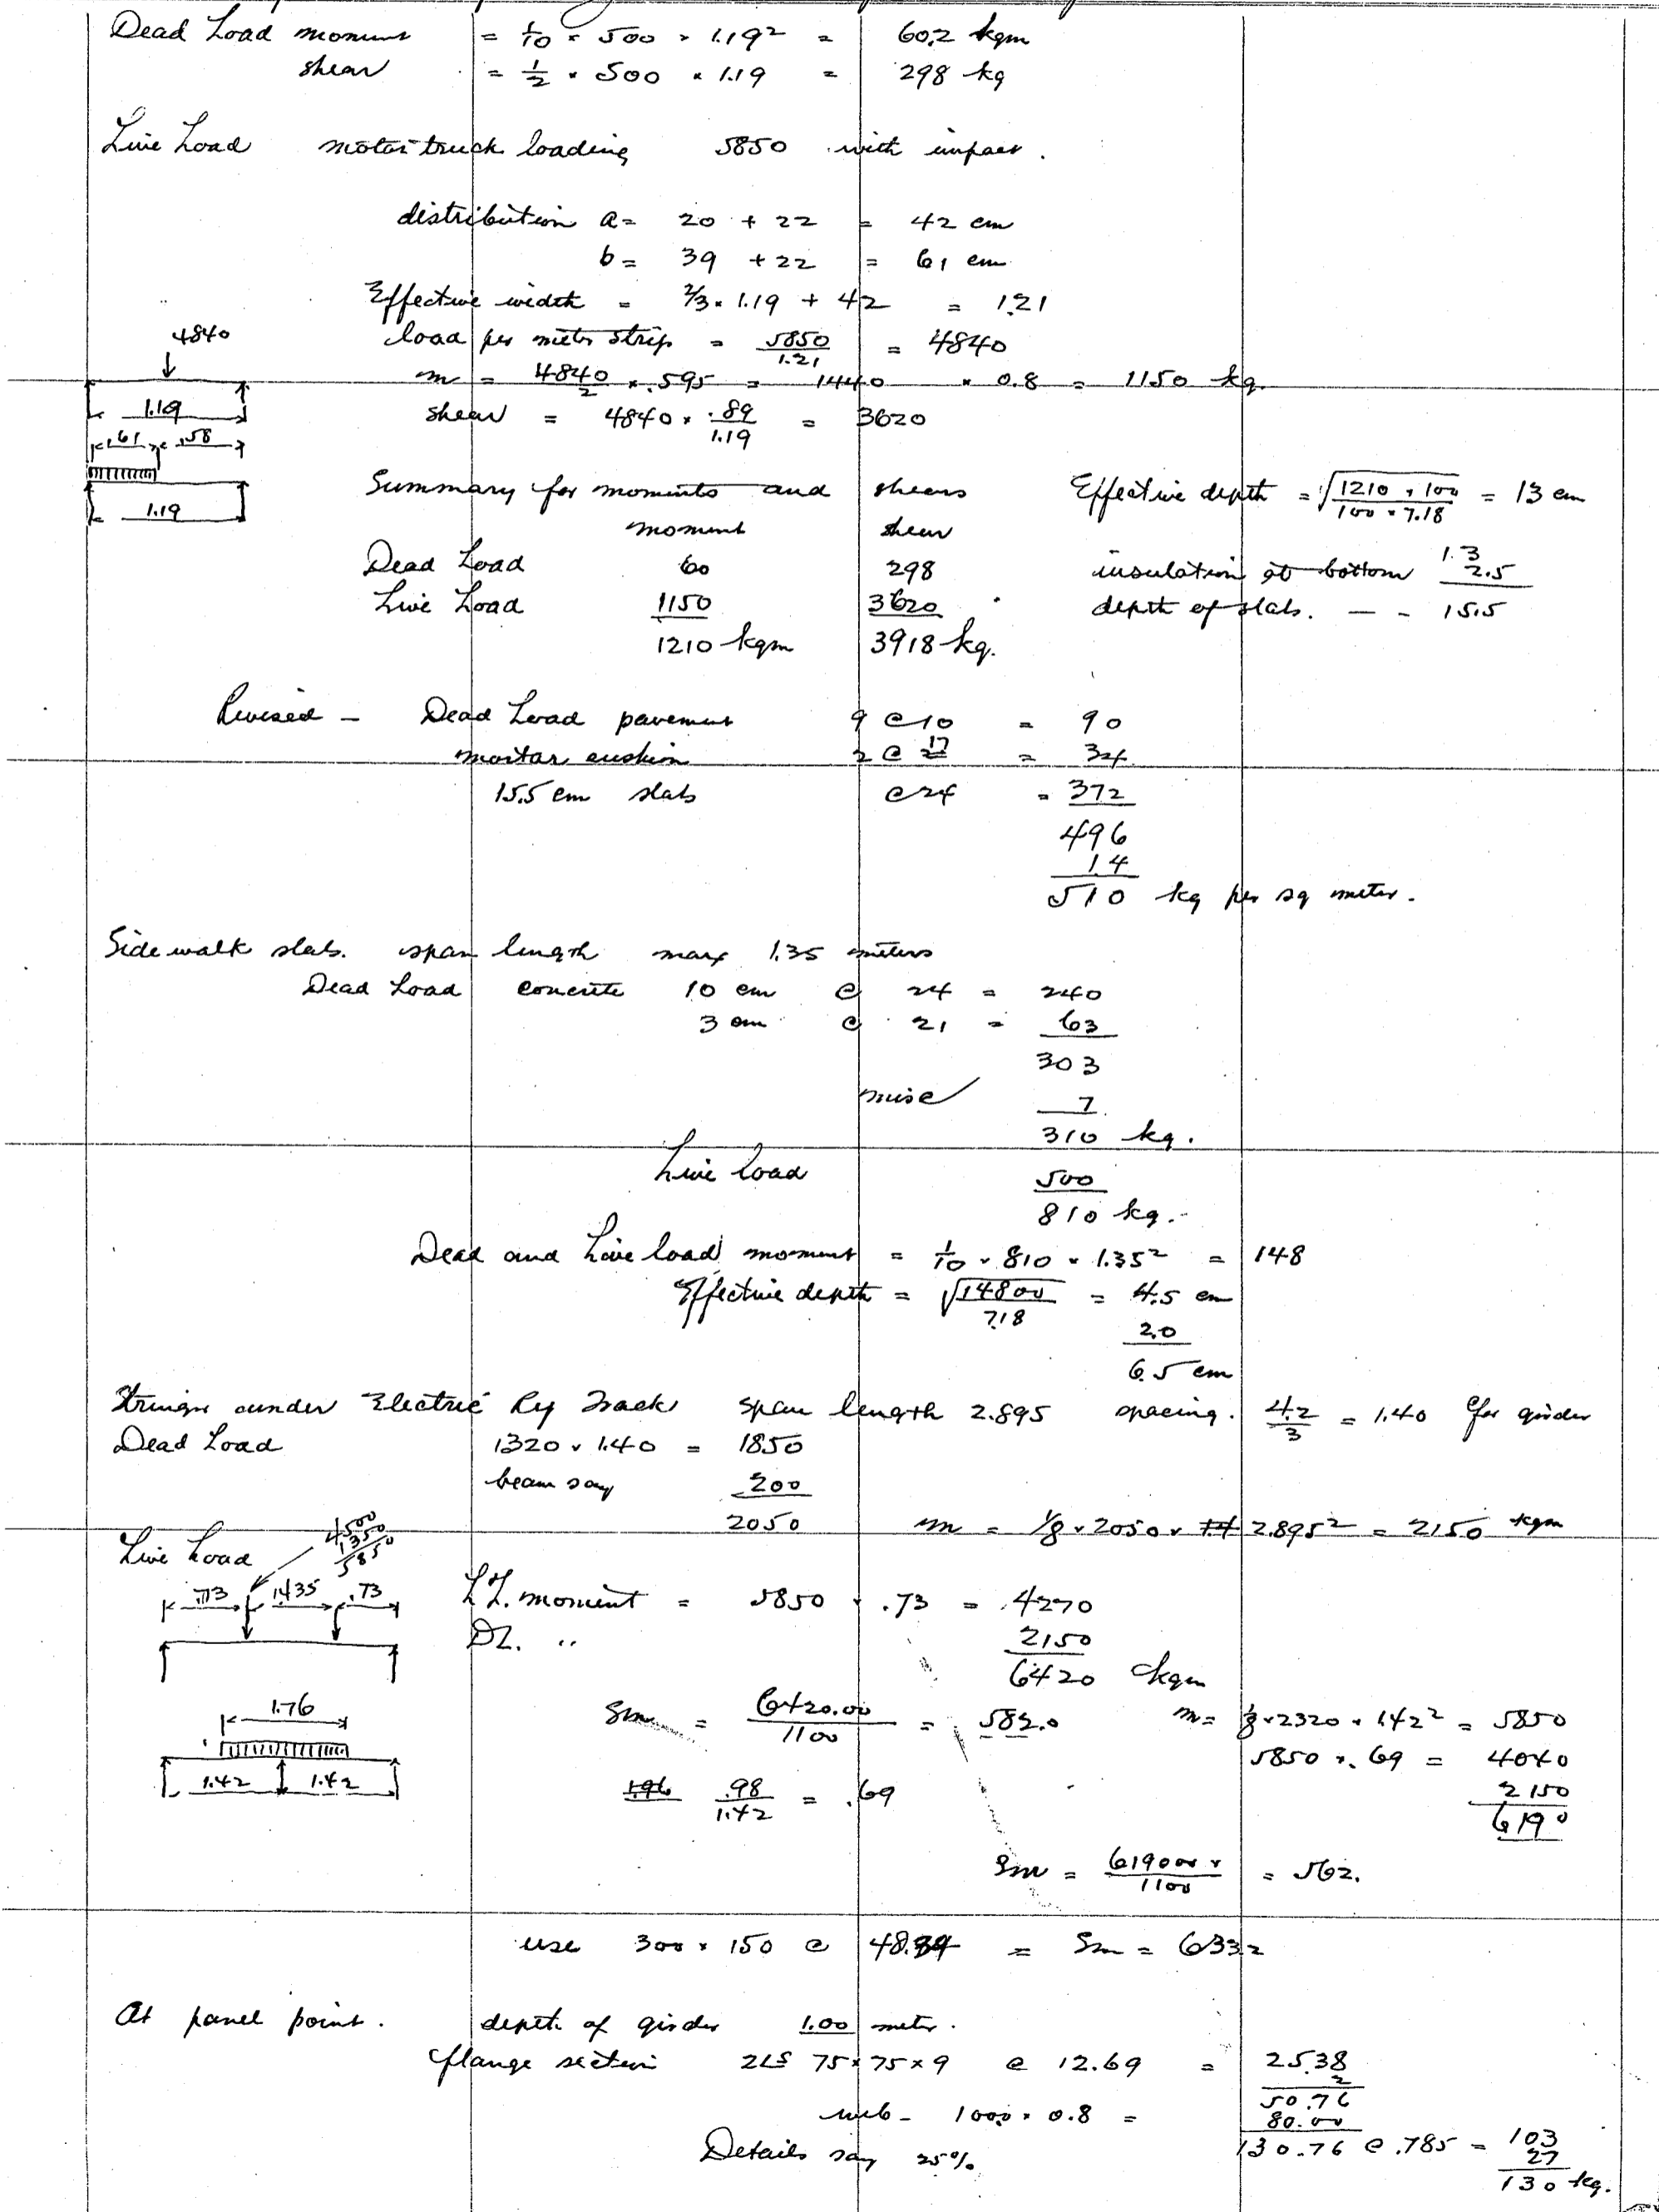 Dead Load moment = 1/10 × 500 × 1.19² = 60.2 kgm
shear = 1/2 × 500 × 1.19 = 298 kg
Live Load motor truck loading 5850 with impact.
distribution a = 20 + 22 = 42 cm
b = 39 + 22 = 61 cm
Effective width = 2/3 × 1.19 + 42 = 1.21
4840
load per meter strip = 5850/1.21 = 4840
m = 4840/2 × .595 = 1440 × 0.8 = 1150 kg.
1.19
shear = 4840 × .89/1.19 = 3620
.61 .58
1.19
Summary for moments and shears
Effective depth = √(1210 × 100 / 100 × 7.18) = 13 cm
moment shear
Dead Load 60 298
insulation at bottom 2.5
Live Load 1150 3620
depth of slab. — - 15.5
1210 kgm 3918 kg.
Revised — Dead Load pavement 9 @ 10 = 90
mortar cushion 2 @ 17 = 34
15.5 cm slab @ 24 = 372
496
14
510 kg per sq meter.
Side walk slab. span length max 1.35 meters
Dead Load concrete 10 cm @ 24 = 240
3 cm @ 21 = 63
303
misc 7
310 kg.
Live load 500
810 kg.
Dead and Live load moment = 1/10 × 810 × 1.35² = 148
Effective depth = √14800/718 = 4.5 cm
2.0
6.5 cm
Stringer under Electric Ry Track span length 2.895 spacing. 4.2/3 = 1.40 for girder
Dead Load 1320 × 1.40 = 1850
beam say 200
2050 m = 1/8 × 2050 × 2.895² = 2150 kgm
Live Load
4500
1350
5850
.73 1.435 .73
LL. moment = 5850 × .73 = 4270
DL. " 2150
6420 kgm
1.76
Sm = 6420.00/1100 = 582.0
m = 1/8 × 2320 × 1.42² = 5850
5850 × .69 = 4040
1.42 1.42
.98/1.42 = .69
2150
6190
Sm = 619000/1100 = 562.
use 300 × 150 @ 48.34 = Sm = 633.2
At panel point. depth of girder 1.00 meter.
flange section 2LS 75 × 75 × 9 @ 12.69 = 25.38
2
50.76
web - 100.0 × 0.8 = 80.00
Details say 25%
130.76 @ .785 = 103
27
130 kg.